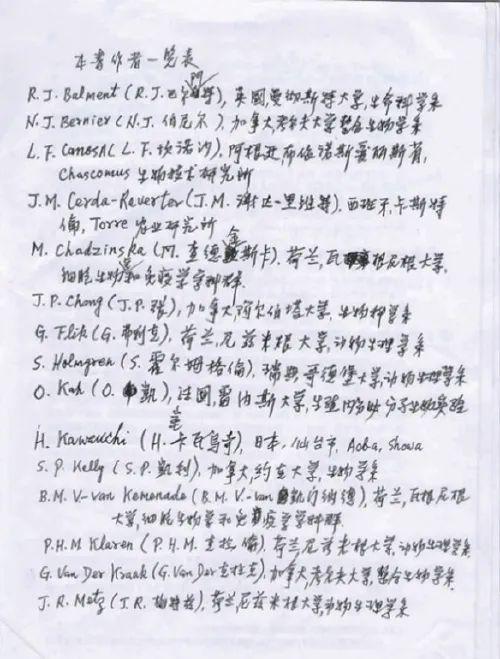 本著作者一览表
R.J. Balment (R.J.巴尔), 英国,曼彻斯特大学,生命科学系
N.J. Bernier (N.J. 伯尼尔), 加拿大,大学整合生物学系
L.F. Canosa( L.F. 坎诺沙), 阿根廷布伊诺斯爱丽斯省,
Chascomus 生物技术研究所
J.M. Cerda-Reverter (J.M. 达-里维), 西班牙,卡斯特
倫, Torre 农业研究所
M. Chadzinska (M. 查德斯卡), 荷兰,瓦根尼根大学,
细胞生物和免疫学学科群.
J.P. Chang (J.P. 张), 加拿大,阿尔伯塔大学, 生物科学系
G. Flik (G. 弗利克), 荷兰,尼兹米根大学,动物生理学系
S. Holmgren (S. 霍尔姆格倫), 瑞典,哥德堡大学,动物生理学系
O. Kah (O. 凯), 法国,雷内斯大学,分子实验
室
H. Kawauchi (H. 卡瓦乌奇), 日本, 仙台市, Aoba, Showa
S.P. Kelly (S.P. 凯利), 加拿大,约克大学,生物学系
B.M. V-van Kemenade (B.M. V.-van 凯), 荷兰,瓦根尼根
大学,细胞生物学和免疫学学科群.
P.H.M Klaren (P.H.M. 克拉倫), 荷兰,尼兹米根大学,动物生理学系
G. Van Der Kraak (G. Van Der 克拉克), 加拿大,大学,整合生物学系
J.R. Metz (J.R. 梅特兹), 荷兰,尼兹米根大学动物生理学系